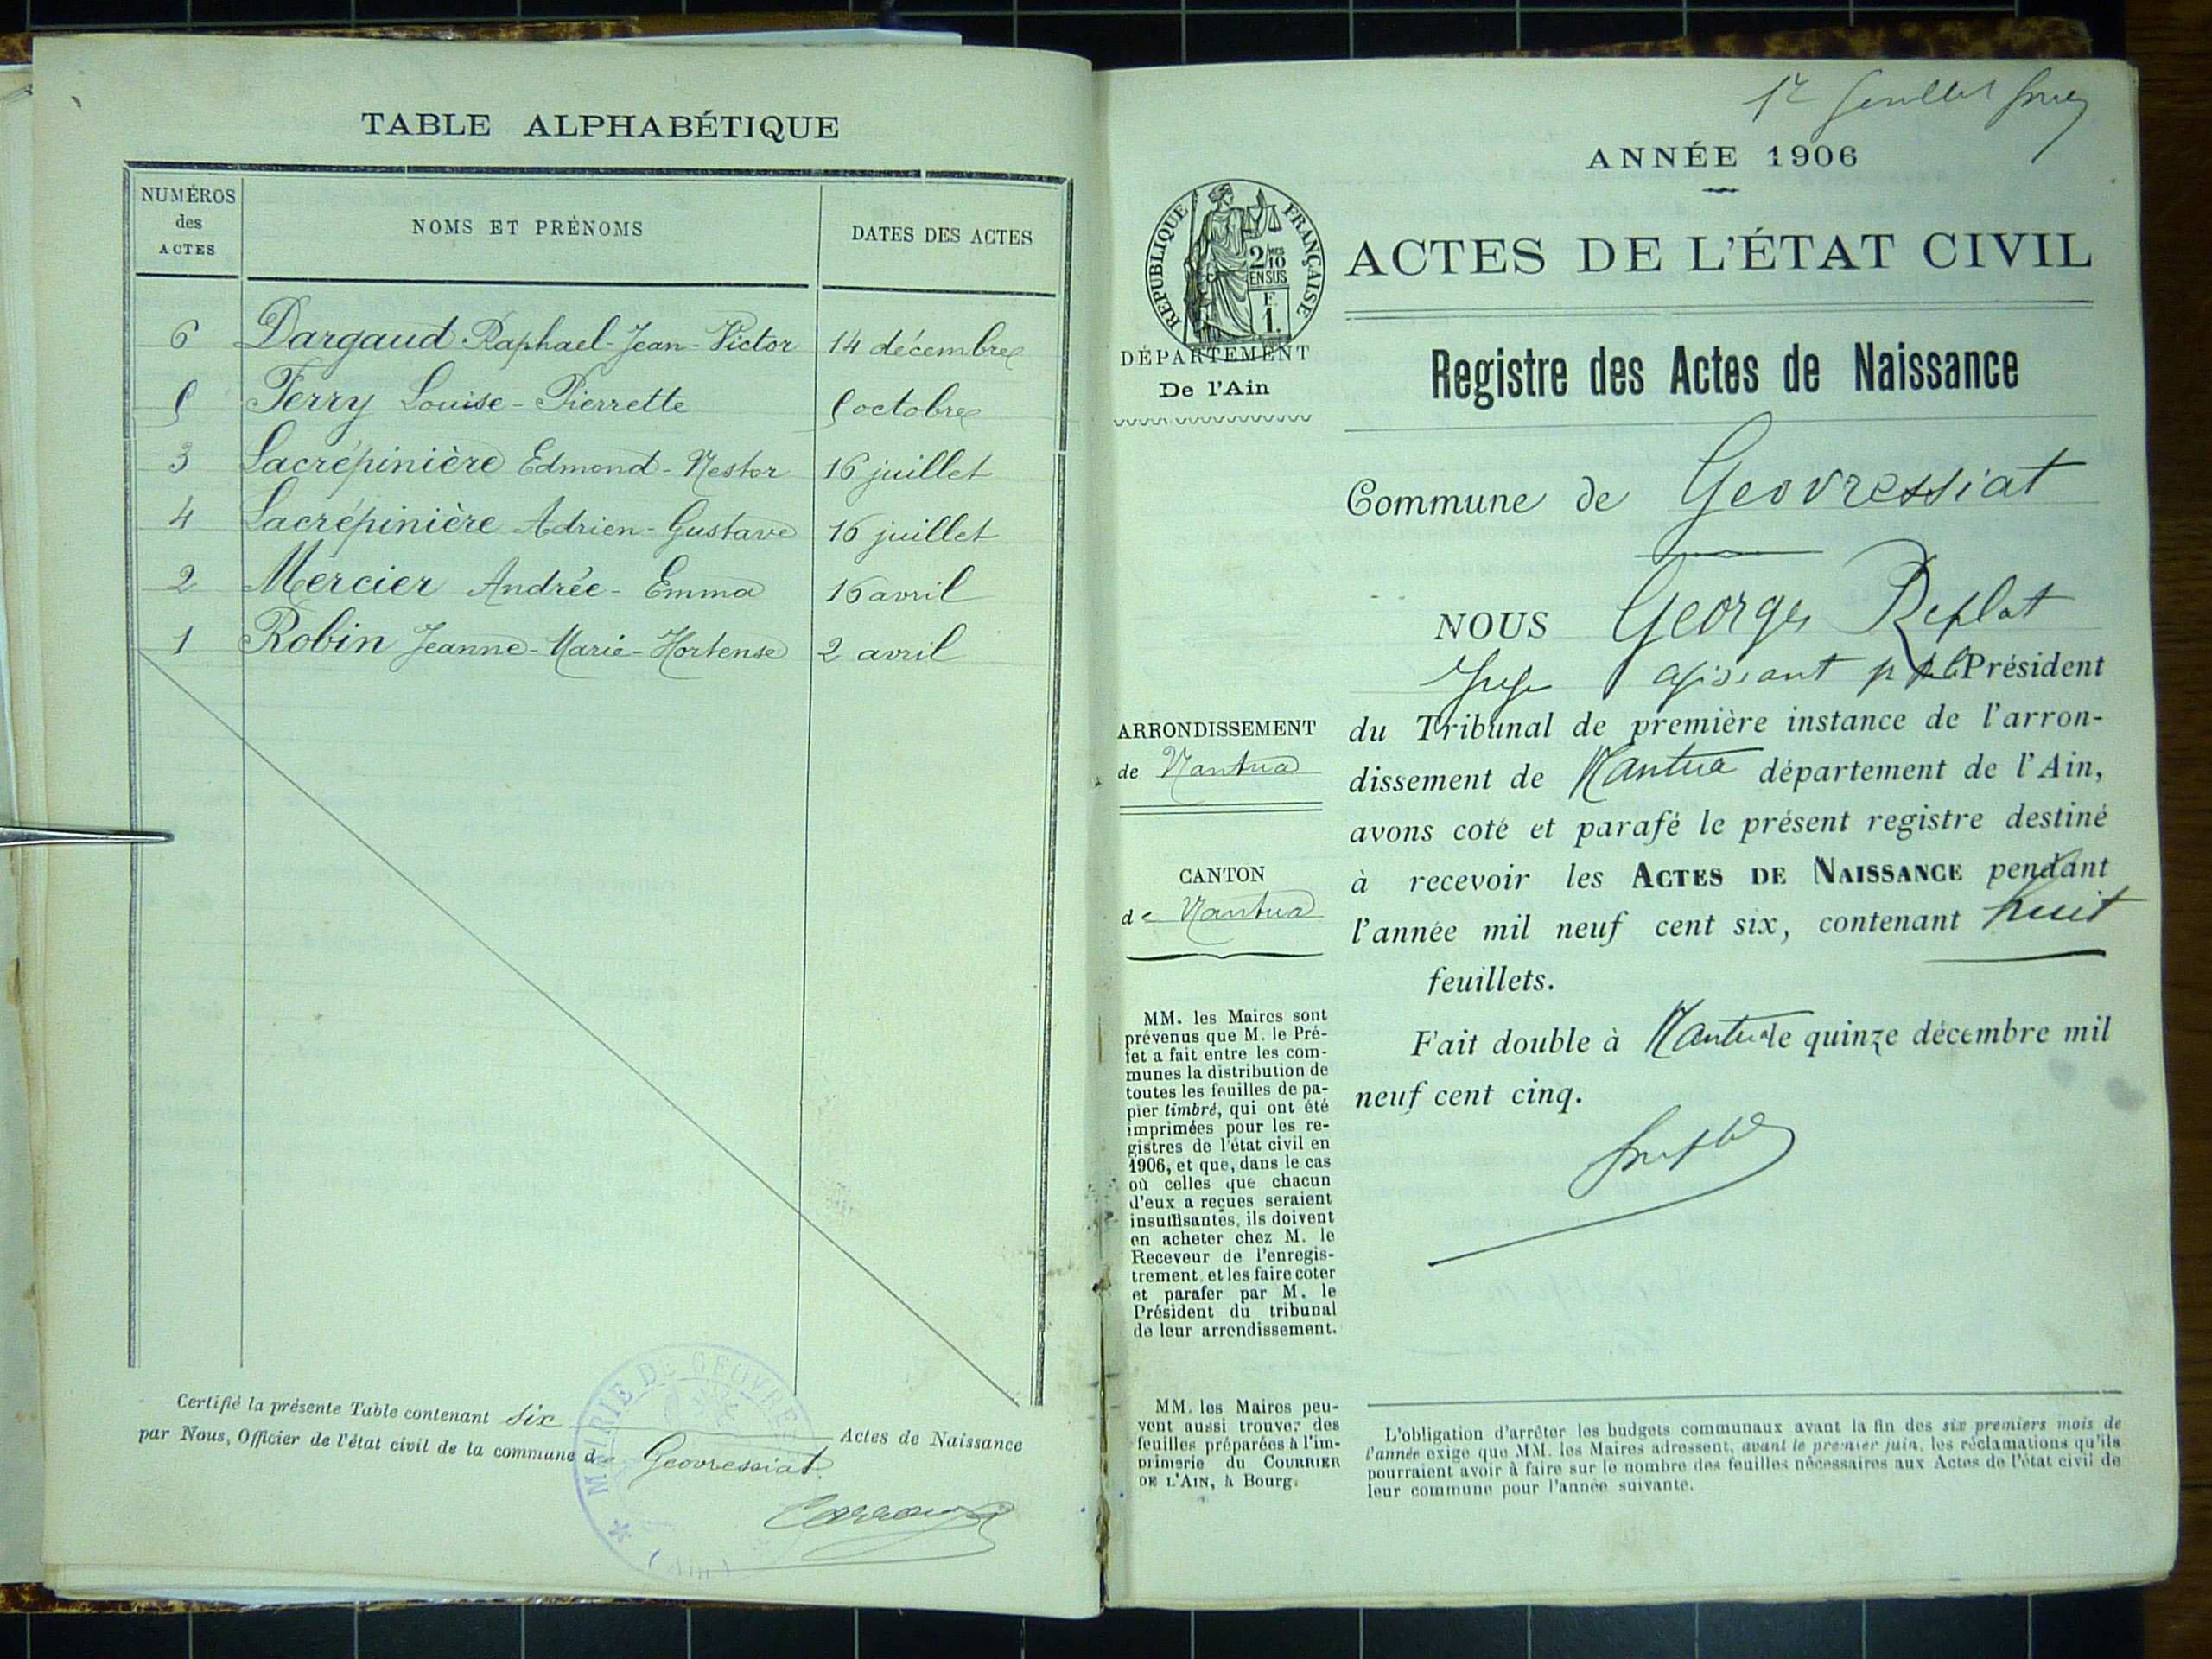 TABLE ALPHABÉTIQUE
NUMÉROS
des
ACTES
NOMS ET PRÉNOMS
DATES DES ACTES
6 Dargaud Raphael-Jean-Victor 14 décembre
5 Ferry Louise-Pierrette 5 octobre
3 Lacrépinière Edmond-Nestor 16 juillet
4 Lacrépinière Adrien-Gustave 16 juillet
2 Mercier Andrée-Emma 16 avril
1 Robin Jeanne-Marie-Hortense 2 avril
Certifié la présente Table contenant six Actes de Naissance
par Nous, Officier de l'état civil de la commune de Geovressiat.
MAIRIE DE GEOVRE
(Ain)
1er feuillet
ANNÉE 1906
RÉPUBLIQUE FRANÇAISE
2/10
EN SUS
F.
1.
ACTES DE L'ÉTAT CIVIL
DÉPARTEMENT
De l'Ain
Registre des Actes de Naissance
Commune de Geovressiat
NOUS Georges Replat
Juge agissant pr le Président
du Tribunal de première instance de l'arron-
dissement de Nantua département de l'Ain,
avons coté et parafé le présent registre destiné
à recevoir les ACTES DE NAISSANCE pendant
l'année mil neuf cent six, contenant huit
feuillets.
Fait double à Nantua le quinze décembre mil
neuf cent cinq.
ARRONDISSEMENT
de Nantua
CANTON
de Nantua
MM. les Maires sont
prévenus que M. le Pré-
fet a fait entre les com-
munes la distribution de
toutes les feuilles de pa-
pier timbré, qui ont été
imprimées pour les re-
gistres de l'état civil en
1906, et que, dans le cas
où celles que chacun
d'eux a reçues seraient
insuffisantes, ils doivent
en acheter chez M. le
Receveur de l'enregis-
trement, et les faire coter
et parafer par M. le
Président du tribunal
de leur arrondissement.
MM. les Maires peu-
vent aussi trouver des
feuilles préparées à l'im-
primerie du COURRIER
DE L'AIN, à Bourg.
L'obligation d'arrêter les budgets communaux avant la fin des six premiers mois de
l'année exige que MM. les Maires adressent, avant le premier juin, les réclamations qu'ils
pourraient avoir à faire sur le nombre des feuilles nécessaires aux Actes de l'état civil de
leur commune pour l'année suivante.